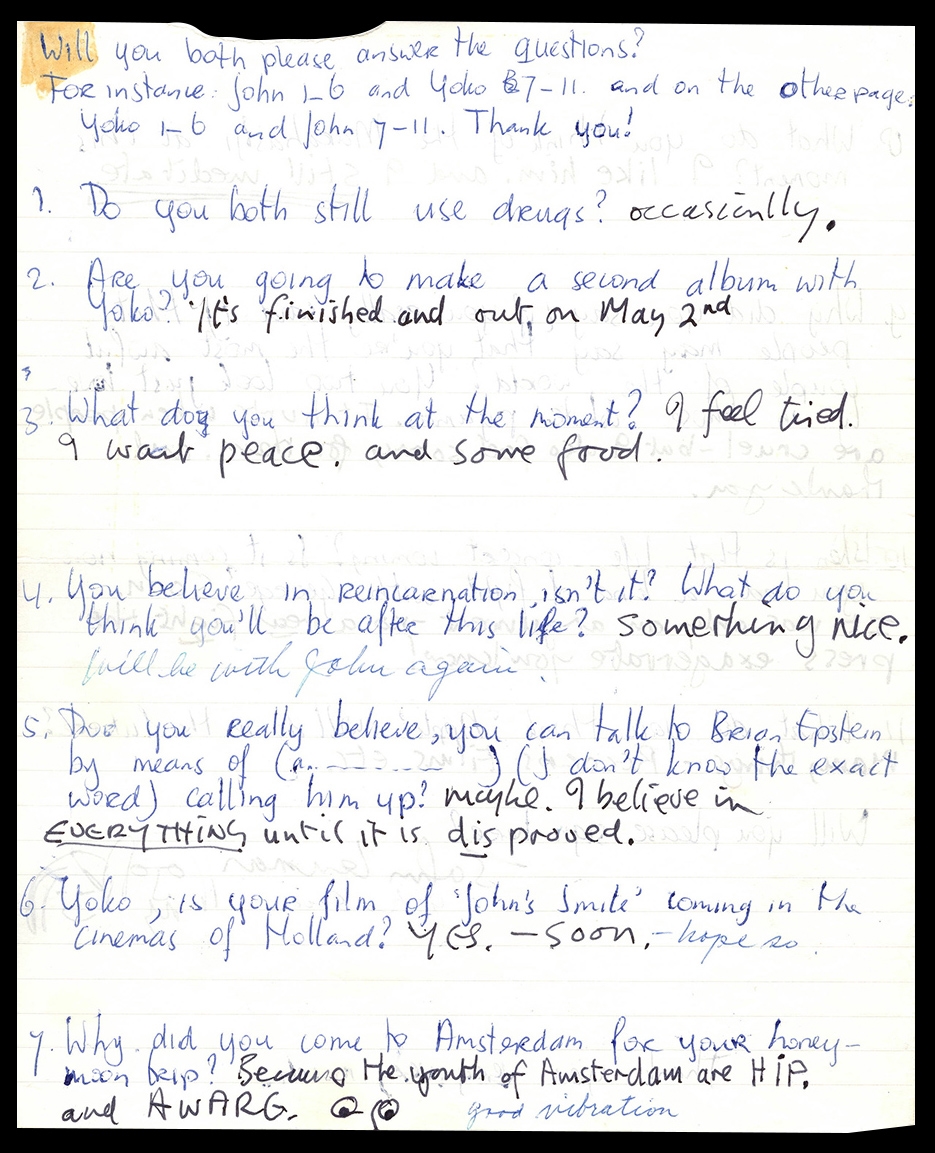 Will you both please answer the questions?
For instance: John 1-6 and Yoko 7-11. and on the other page:
Yoko 1-6 and John 7-11. Thank you!
1. Do you both still use drugs? occasionlly.
2. Are you going to make a second album with
Yoko? It's finished and out, on May 2nd
3. What do you think at the moment? I feel tired.
I want peace. and some food.
4. You believe in reincarnation, isn't it? What do you
think you'll be after this life? something nice.
Will be with John again.
5. Do you really believe, you can talk to Brian Epstein
by means of (a.............) (I don't know the exact
word) calling him up? maybe. I believe in
EVERYTHING until it is disproved.
6. Yoko, is your film of 'John's Smile' coming in the
cinemas of Holland? YES. - soon. - hope so.
7. Why did you come to Amsterdam for your honey-
moon trip? Because the youth of Amsterdam are HIP.
and AWARE. good vibration